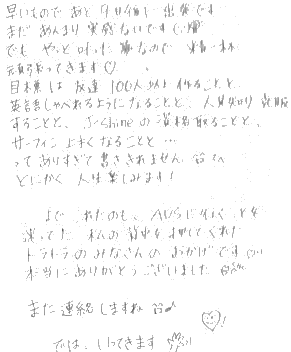 早いもので あと 4日後に 出発です
まだ あんまり 実感ないです(笑)
でも やっと叶った事なので 精一杯
頑張ってきます♡
目標は 友達 100人以上 作ることと、
英語しゃべれるようになることと、人見知り 克服
すること、J-shineの資格取ることと、
サーフィン 上手くなることと…
って ありすぎて 書ききれません
とにかく 人生楽しみます!
ここまで これたのも、AUSに行くことを
迷ってた 私の 背中を 押してくれた
トラトラの みなさんの おかげです
本当に ありがとう ございました
また 連絡 しますね
では、いってきます